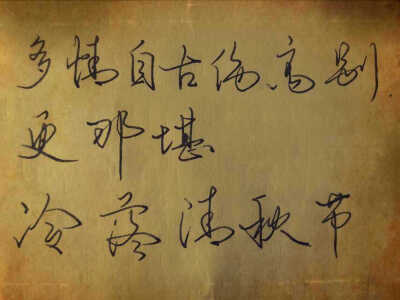 多情自古伤离别
更那堪
冷落清秋节